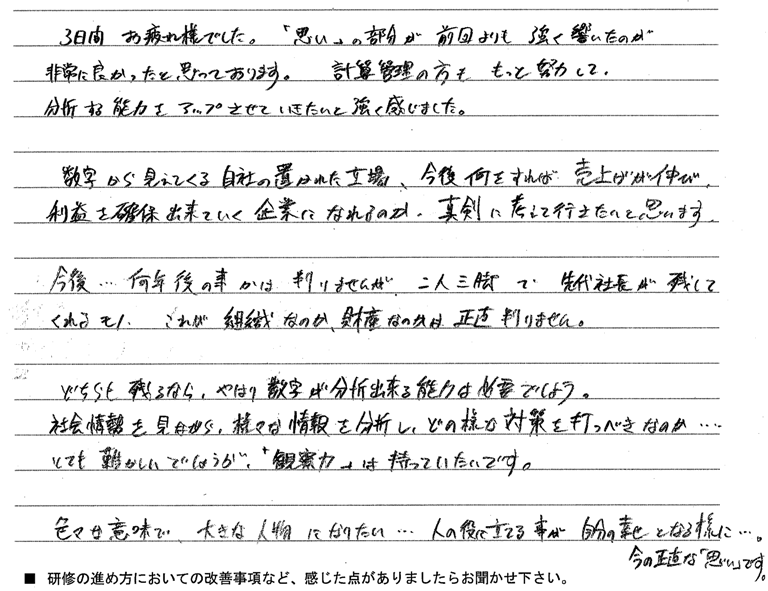 3日間 お疲れ様でした。「思い」の部分が 前回よりも 強く響いたのが
非常に良かったと思っております。 計算管理の方も もっと努力して、
分析する能力を アップさせていきたいと 強く感じました。
数字から見えてくる自社の置かれた立場、今後何をすれば 売上げが伸び、
利益を確保出来ていく企業になれるのか、真剣に考えて行きたいと思います。
今後… 何年後の事かは 判りませんが 二人三脚で 先代社長が 残して
くれるモノ、これが組織なのか、財産なのかは 正直判りません。
どちらも残るなら、やはり数字が分析出来る能力は必要でしょう。
社会情勢を見ながら、様々な情報を分析し、どの様な対策を打つべきなのか…
とても難かしいでしょうが、「観察力」は持っていたいです。
色々な意味で、大きな人物になりたい… 人の役に立てる事が 自分の幸せとなる様に…。
今の正直な「思い」です。
■ 研修の進め方においての改善事項など、感じた点がありましたらお聞かせ下さい。